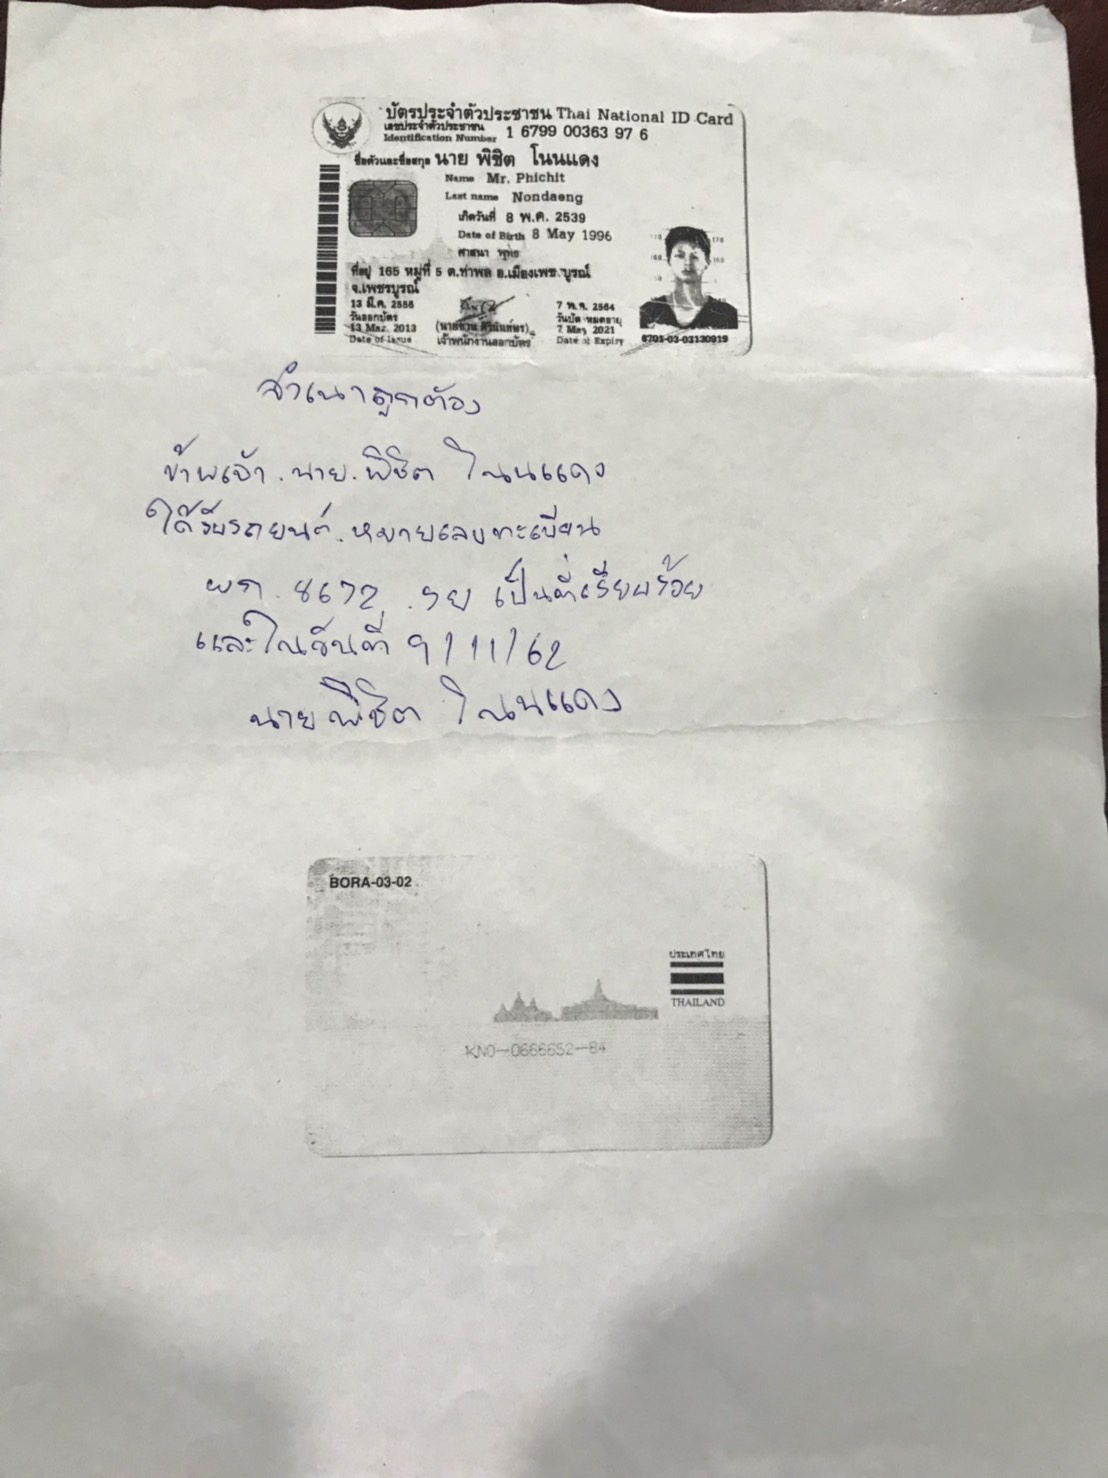 บัตรประจำตัวประชาชน Thai National ID Card
เลขประจำตัวประชาชน
Identification Number 1 6799 00363 97 6
ชื่อตัวและชื่อสกุล นาย พิชิต โนนแดง
Name Mr. Phichit
Last name Nondaeng
เกิดวันที่ 8 พ.ค. 2539
Date of Birth 8 May 1996
ศาสนา พุทธ
ที่อยู่ 165 หมู่ที่ 5 ต.ท่าพล อ.เมืองเพชรบูรณ์
จ.เพชรบูรณ์
13 มี.ค. 2556
วันออกบัตร
13 Mar. 2013
Date of Issue
เจ้าพนักงานออกบัตร
7 พ.ค. 2564
วันบัตรหมดอายุ
7 May 2021
Date of Expiry
6701-03-03130919
สำเนาถูกต้อง
ข้าพเจ้า. นาย. พิชิต โนนแดง
ได้รับรถยนต์. หมายเลขทะเบียน
ผก. 8672 . เป็นที่เรียบร้อย
และในวันที่ 9/11/62
นายพิชิต โนนแดง
BORA-03-02
ประเทศไทย
THAILAND
KN0-0666652-84